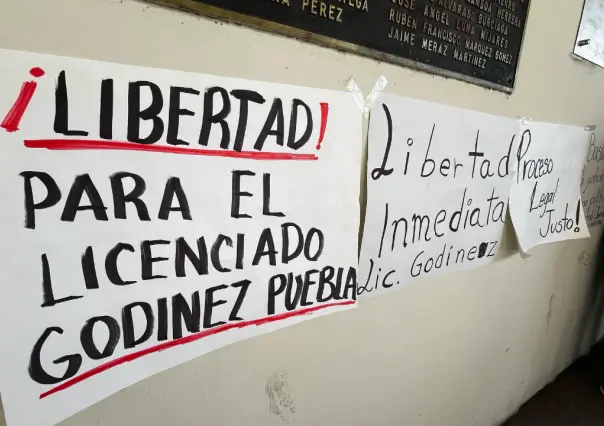 PEREZ
JOSE ANGEL LUNA MIJARES
RUBEN FRANCISCO MARQUEZ GOMEZ
JAIME MERAZ MARTINEZ
¡LIBERTAD!
PARA EL
LICENCIADO
GODINEZ PUEBLA
Libertad
Inmediata
Lic. Godinez
Proceso
Legal
Justo!